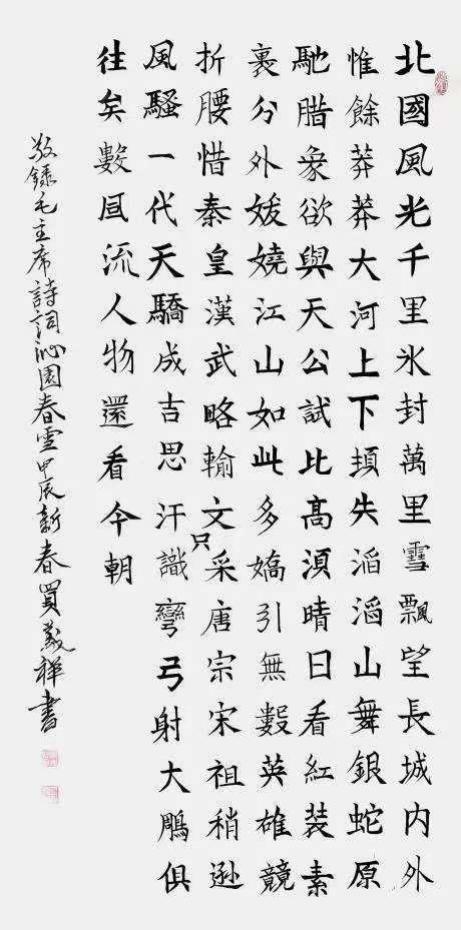 北國風光千里氷封萬里雪飄望長城内外
惟餘莽莽大河上下頓失滔滔山舞銀蛇原
馳腊象欲與天公試比高湏晴日看紅装素
裹分外妖嬈江山如此多嬌引無數英雄競
折腰惜秦皇漢武略輸文采唐宗宋祖稍遜
風騷一代天驕成吉思汗只識彎弓射大鵰俱
往矣數凨流人物還看今朝
敬録毛主席詩詞沁園春雪甲辰新春買義祥書